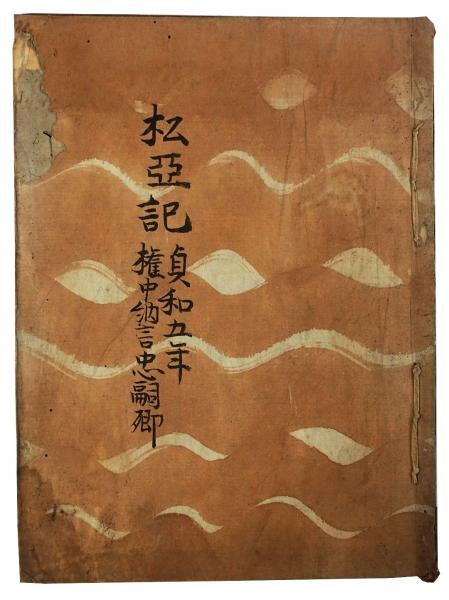 松亞記
貞和五年
権中納言忠嗣卿